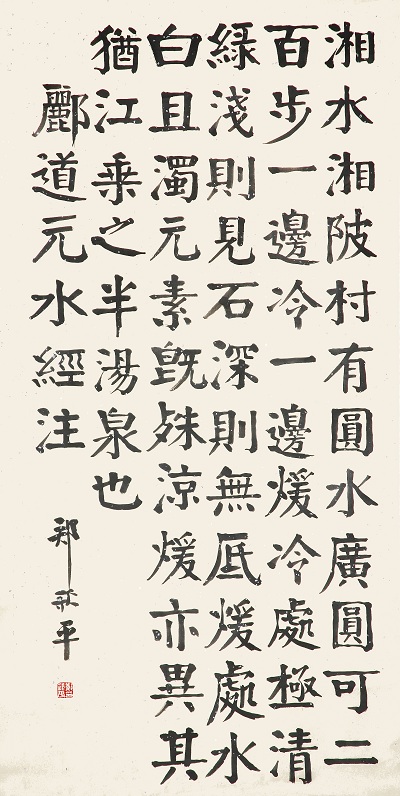 湘水湘陂村有圓水廣圓可二
百步一邊冷一邊煖冷處極清
綠淺則見石深則無底煖處水
白且濁元素既殊涼煖亦異其
猶江乘之半湯泉也
酈道元水經注
鄭 平